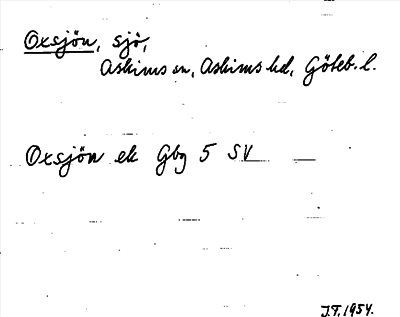 Oxsjön, sjö,
Askims sn, Askims hd, Göteb. l.
Oxsjön ek Gbg 5 SV
J.T. 1954.